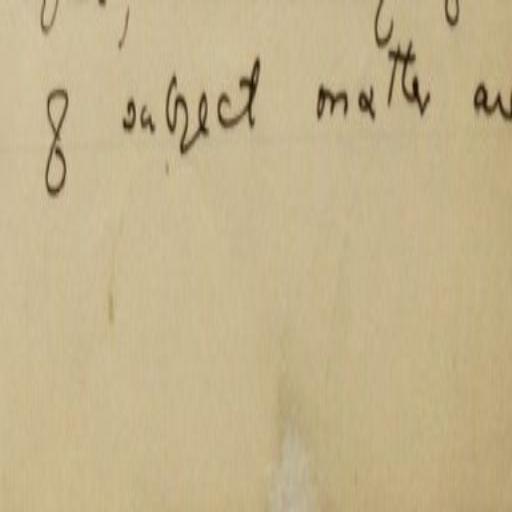 of subject matter